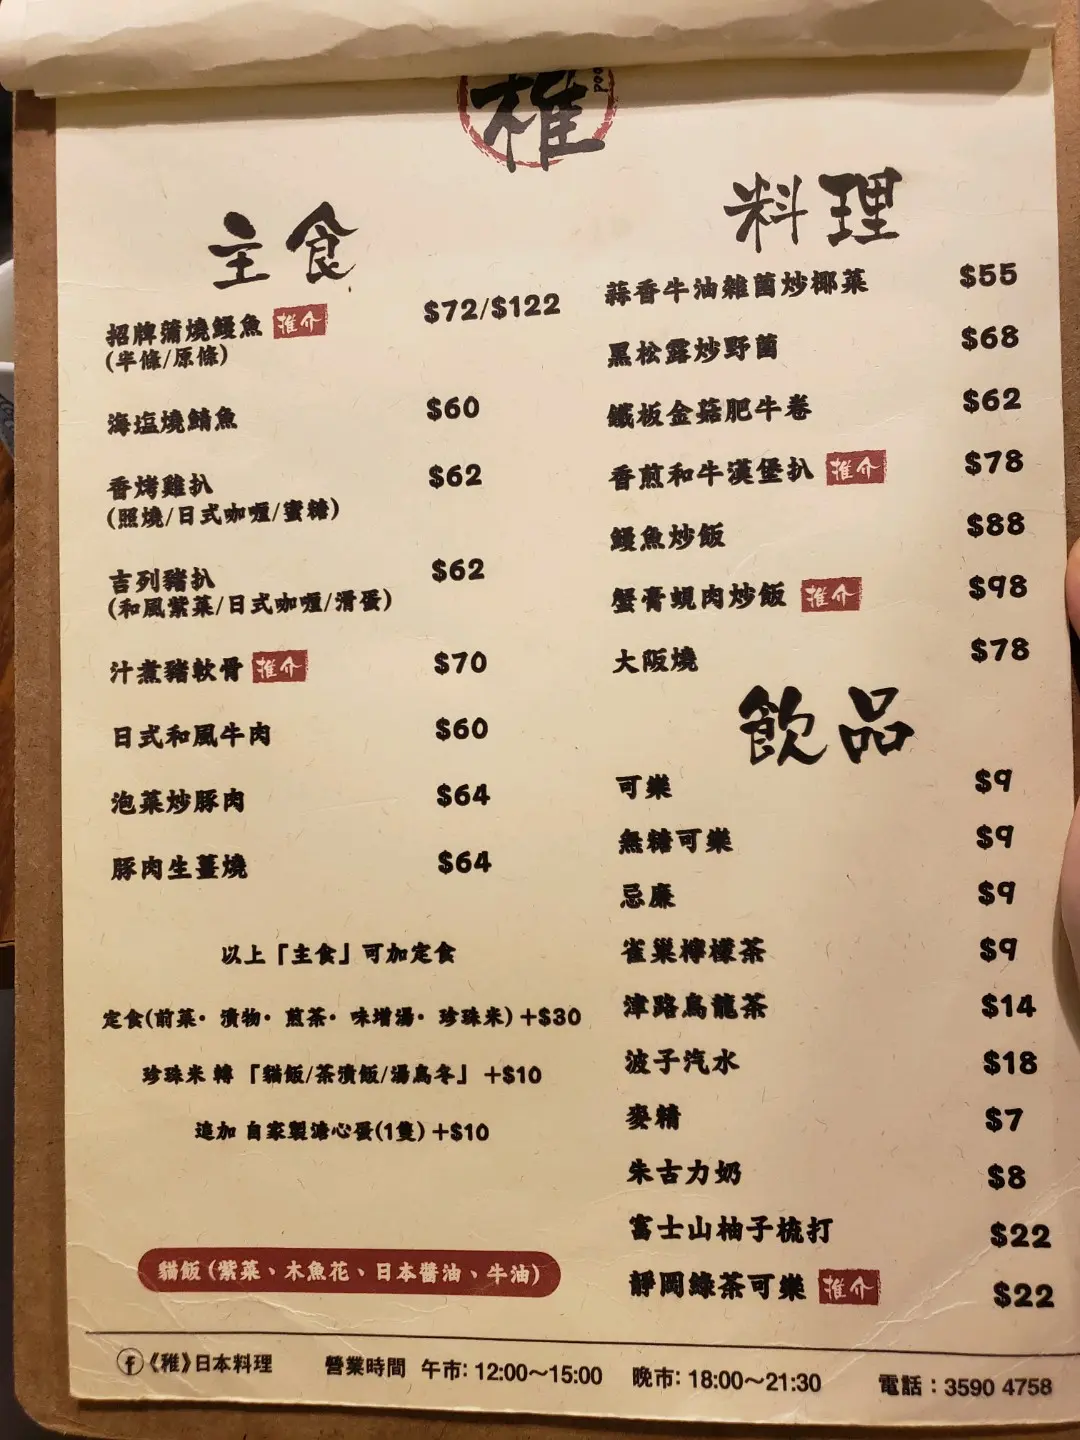 稚
主食
招牌蒲燒鰻魚 推介 $72/$122
(半條/原條)
海塩燒鯖魚 $60
香烤雞扒 $62
(照燒/日式咖喱/蜜糖)
吉列豬扒 $62
(和風紫菜/日式咖喱/滑蛋)
汁煮豬軟骨 推介 $70
日式和風牛肉 $60
泡菜炒豚肉 $64
豚肉生薑燒 $64
以上「主食」可加定食
定食(前菜・漬物・煎茶・味增湯・珍珠米) +$30
珍珠米 轉 「貓飯/茶漬飯/湯烏冬」 +$10
追加 自家製溏心蛋(1隻) +$10
貓飯 (紫菜、木魚花、日本醬油、牛油)
料理
蒜香牛油雜菌炒椰菜 $55
黑松露炒野菌 $68
鐵板金菇肥牛卷 $62
香煎和牛漢堡扒 推介 $78
鰻魚炒飯 $88
蟹膏蜆肉炒飯 推介 $98
大阪燒 $78
飲品
可樂 $9
無糖可樂 $9
忌廉 $9
雀巢檸檬茶 $9
津路烏龍茶 $14
波子汽水 $18
麥精 $7
朱古力奶 $8
富士山柚子梳打 $22
靜岡綠茶可樂 推介 $22
《稚》日本料理 營業時間 午市: 12:00~15:00 晚市: 18:00~21:30 電話：3590 4758